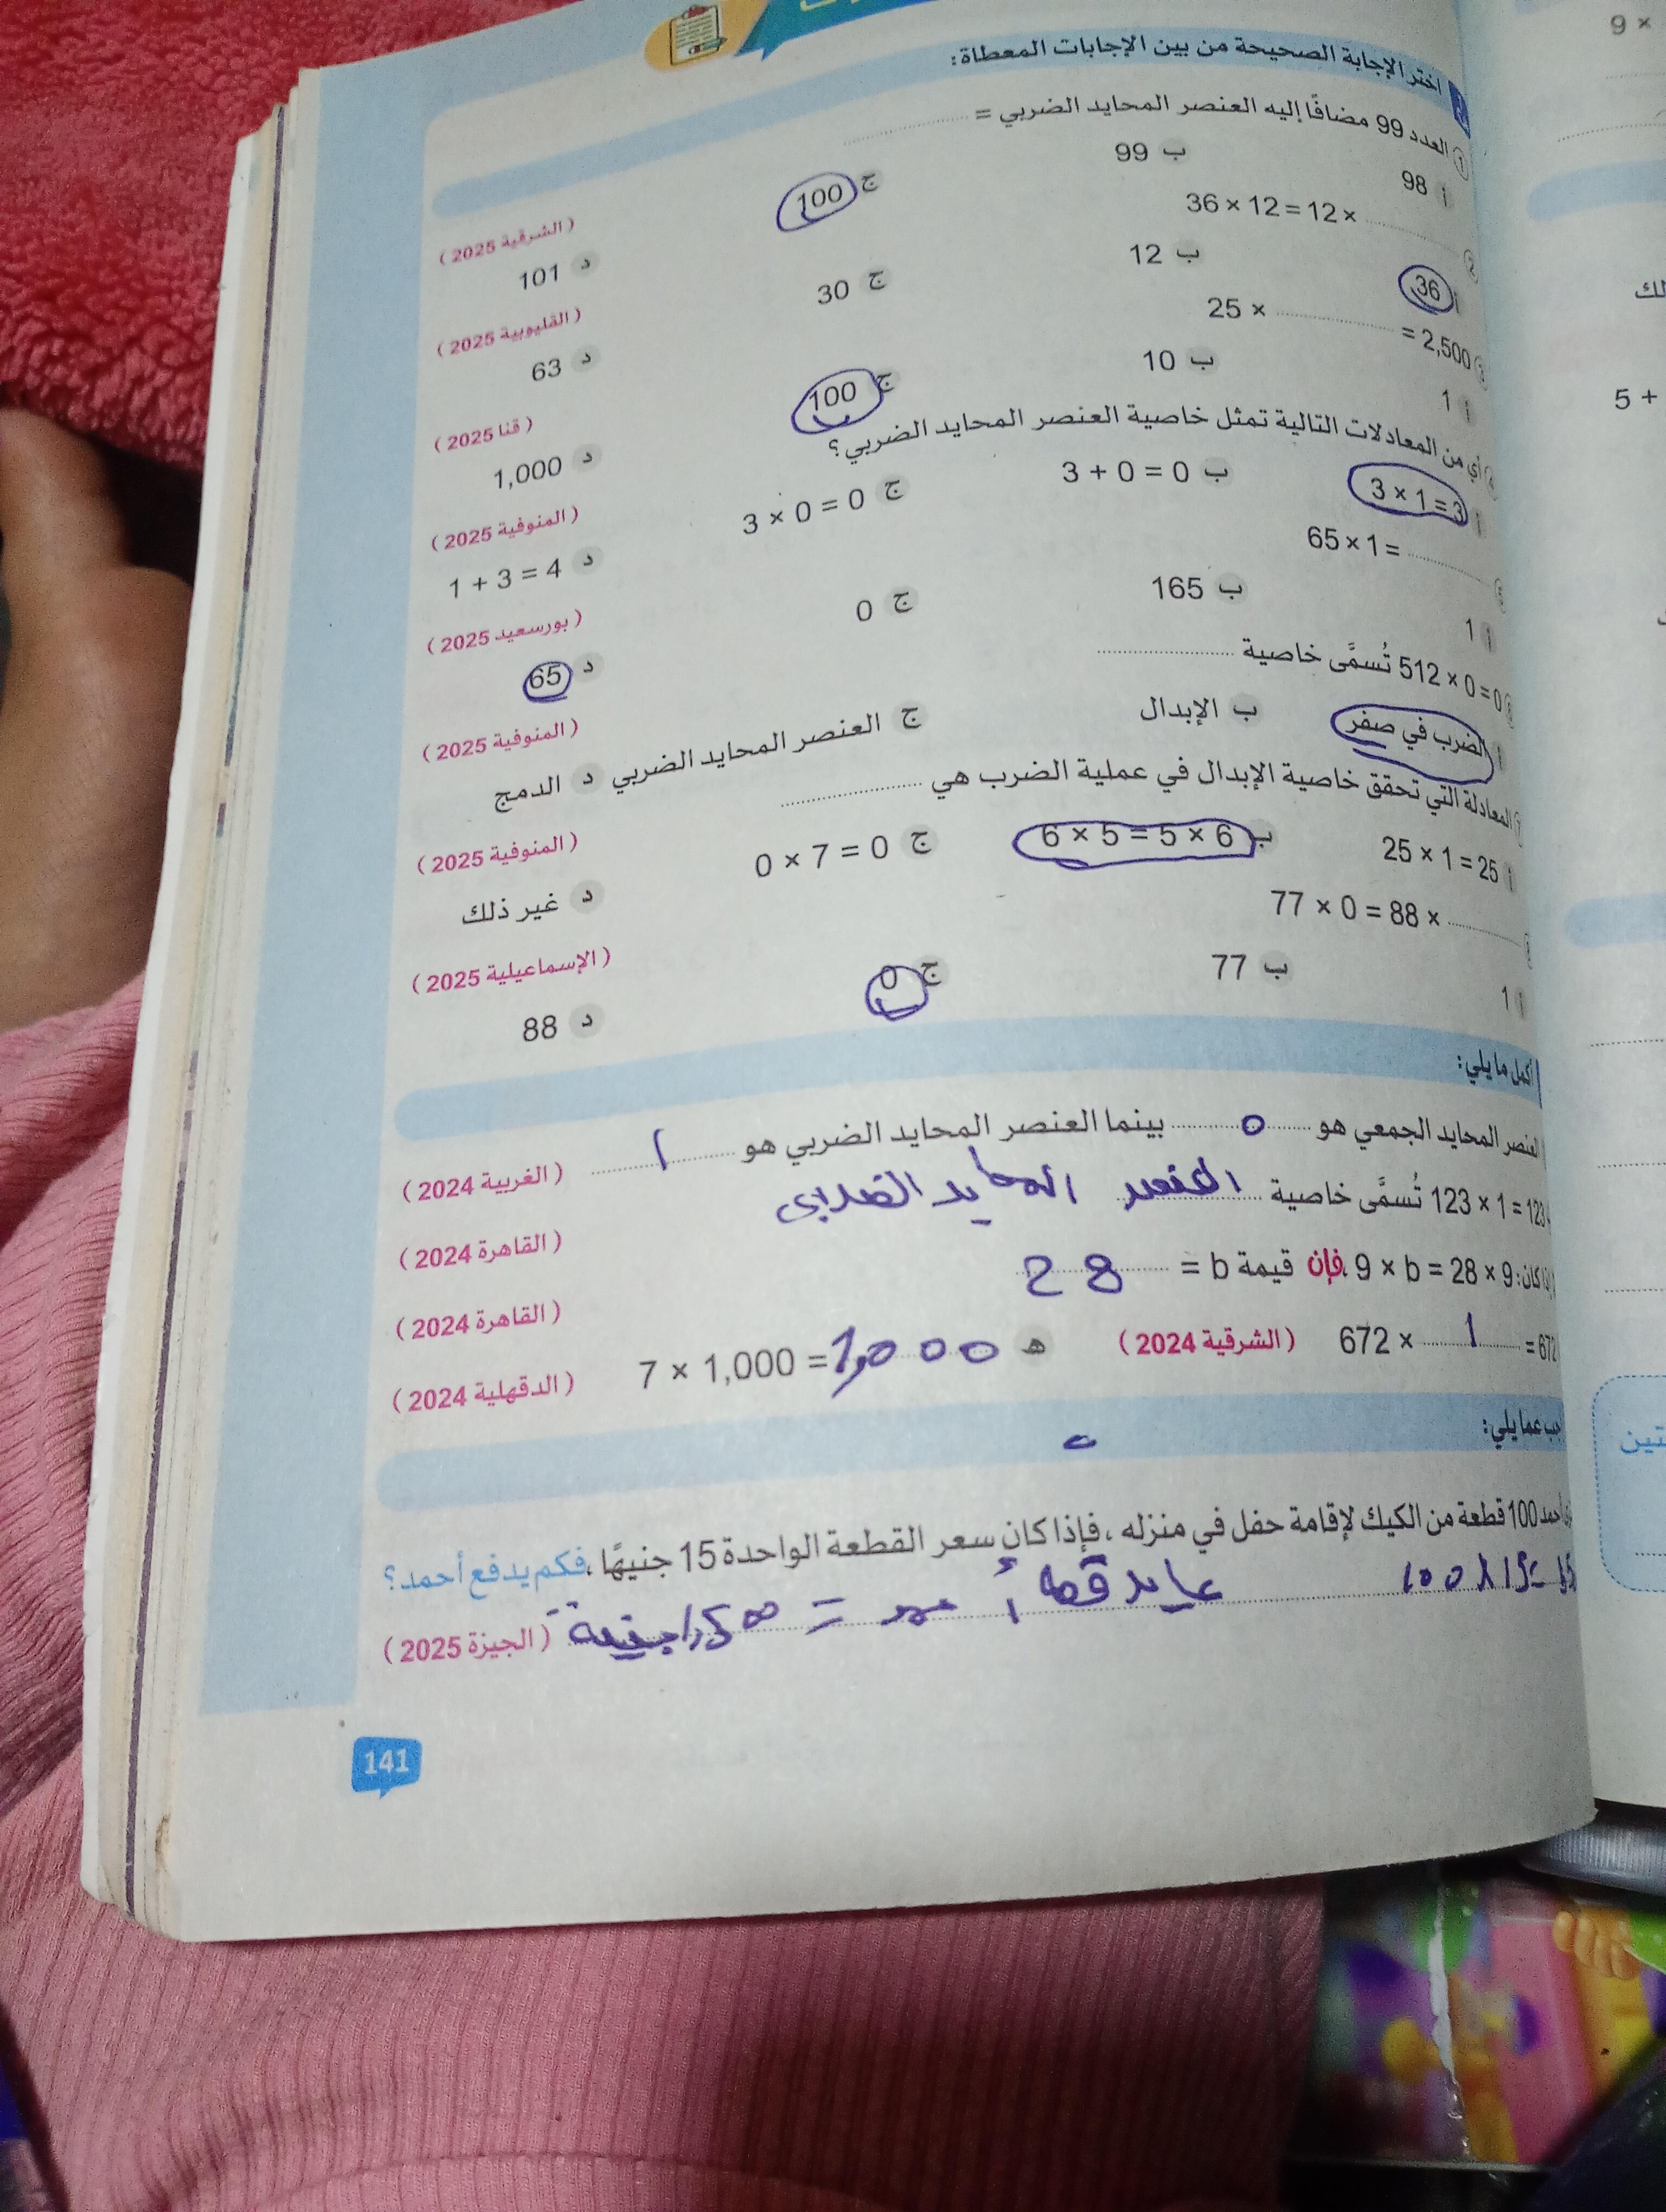 اختر الإجابة الصحيحة من بين الإجابات المعطاة:
1 العدد 99 مضافًا إليه العنصر المحايد الضربي = ............ (الشرقية 2025)
أ 98 ب 99 ج 100 د 101
2 36 × 12 = 12 × ............ (القليوبية 2025)
أ 36 ب 12 ج 30 د 63
3 25 × ............ = 2,500 (قنا 2025)
أ 1 ب 10 ج 100 د 1,000
4 أي من المعادلات التالية تمثل خاصية العنصر المحايد الضربي؟ (المنوفية 2025)
أ 3 × 1 = 3 ب 3 + 0 = 0 ج 3 × 0 = 0 د 1 + 3 = 4
65 × 1 = ............ (بورسعيد 2025)
أ 1 ب 165 ج 0 د 65
512 × 0 = 0 تُسمَّى خاصية ............ (المنوفية 2025)
أ الضرب في صفر ب الإبدال ج العنصر المحايد الضربي د الدمج
7 المعادلة التي تحقق خاصية الإبدال في عملية الضرب هي ............ (المنوفية 2025)
أ 25 × 1 = 25 ب 6 × 5 = 5 × 6 ج 0 × 7 = 0 د غير ذلك
77 × 0 = 88 × ............ (الإسماعيلية 2025)
أ 1 ب 77 ج 0 د 88
أكمل ما يلي:
العنصر المحايد الجمعي هو 0 بينما العنصر المحايد الضربي هو 1 (الغربية 2024)
123 × 1 = 123 تُسمَّى خاصية العنصر المحايد الضربي (القاهرة 2024)
إذا كان: 9 × b = 28 × 9 ،فإن قيمة b = 28 (القاهرة 2024)
672 × 1 = 672 (الشرقية 2024) هـ 7 × 1,000 = 7,000 (الدقهلية 2024)
أجب عما يلي:
أحمد 100 قطعة من الكيك لإقامة حفل في منزله ، فإذا كان سعر القطعة الواحدة 15 جنيهًا ،فكم يدفع أحمد؟
100 × 15 = أحمد = 1,500 جنيه (الجيزة 2025)
141
9 ×
5 +